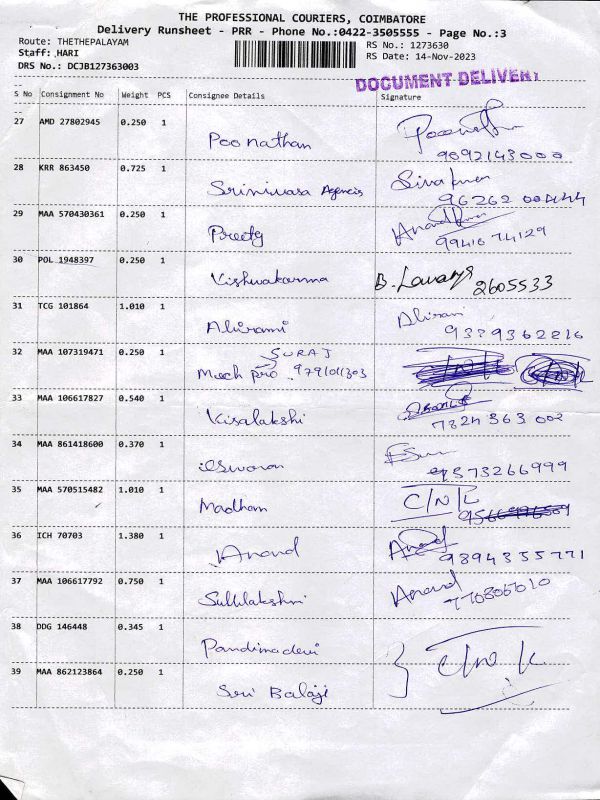 THE PROFESSIONAL COURIERS, COIMBATORE
Delivery Runsheet - PRR - Phone No.:0422-3505555 - Page No.:3
Route: THETHEPALAYAM RS No.: 1273630
Staff: HARI RS Date: 14-Nov-2023
DRS No.: DCJB127363003
DOCUMENT DELIVERY
S No Consignment No Weight PCS Consignee Details Signature
27 AMD 27802945 0.250 1 Poonathan
9092143000
28 KRR 863450 0.725 1 Srinivasa Agencis Sivakumar
96262 00444
29 MAA 570430361 0.250 1 Preetg Anandkumar
99416 74129
30 POL 1948397 0.250 1 Vishwakarma B. Lavanya 2605533
31 TCG 101864 1.010 1 Abirami Abirami
9339362216
32 MAA 107319471 0.250 1 SURAJ
Mech pro 9791011303
33 MAA 106617827 0.540 1 Visalakshi
7824 363 002
34 MAA 861418600 0.370 1 ileswaran
9573266999
35 MAA 570515482 1.010 1 Madham C/N/L
36 ICH 70703 1.380 1 Anand Anand
9894355771
37 MAA 106617792 0.750 1 Sublakshmi Anand
38 DDG 146448 0.345 1 Pandimadevi
39 MAA 862123864 0.250 1 Sri Balaji